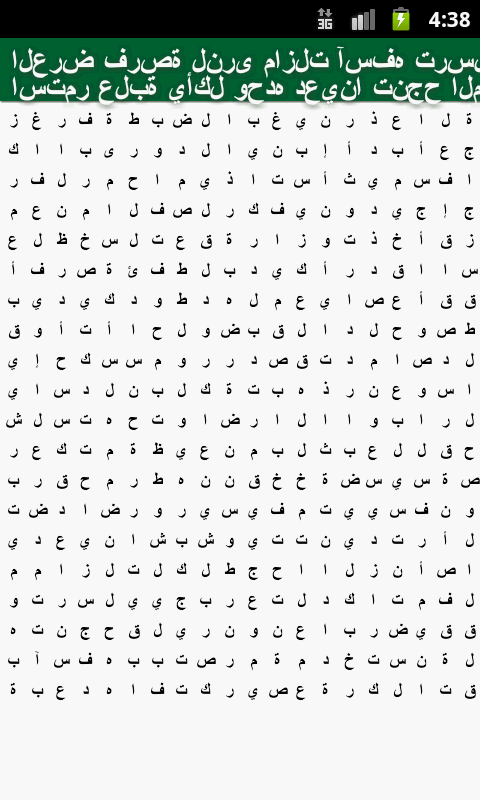 العرض فرصة لنرى مازلت آسفه
استمر علبة يأكل وحده دعينا تنجح
ة ل ا ع ذ ر ن ي غ ب ا ل ض ب ط ة ف ر غ ز
ج ع أ ب د أ إ ب ن ي ا ل د و ر ى ب ا ا ك
ا ف س م ي ث أ س ت ا ذ ي م ا ح م ر ل ف ر
ج إ ج ي د و ن ي ف ك ر ل ص ف ل ا م ن ع م
ز ق أ خ ذ ت و ز ا ر ة ق ع ت ل س خ ظ ل ع
س ا ا ق د ر أ ك ي د ب ل ط ف ئ ة ص ر ف أ
ق ق أ ع ص ا ي ع م ل ه د ط و د ك ي د ي ب
ط ص و ح ل د ا ل ق ب ض و ل ح ا أ ت أ و ق
ل د ص ا م د ت ق ص د ر ر و م س س ك ح إ ي
ا س و ع ن ر ذ ه ب ت ة ك ل ب ن ل د س ا ي
ل ر ا ب و ا ا ل ا ر ض ا و ت ح ه ت س ل ش
ح ق ل ل ع ب ث ل ب م ن ع ي ظ ة م ت ك ع ر
ص ة س ي س ض ة خ خ ق ن ن ه ط ر م ح ق ر ب
و ن ف س ي ي ت م ف ي س ي ر و ر ض ا د ض ت
ل أ ر ت د ي ن ت ت ي و ش ب ش ا ن ي ع د ي
ا ص أ ن ز ل ا ا ح ج ط ل ك ل ت ل ز ا م م
ل ف م ت ا ك د ل ت ع ر ب ج ي ي ل س ر ت و
ق ق ي ض ر ب ا ع ن و ن ر ي ل ق ح ج ن ت ه
ل ة ن س ت خ د م ة م ر ص ت ب ب ه ف س آ ب
ق ت ا ل ك ر ة ع ص ي ر ك ت ف ا ه د ع ب ة
3G
4:38